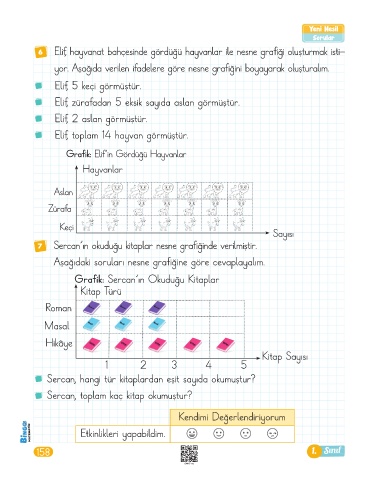 Yeni Nesil
Sorular
6 Elif, hayvanat bahçesinde gördüğü hayvanlar ile nesne grafiği oluşturmak isti-
yor. Aşağıda verilen ifadelere göre nesne grafiğini boyayarak oluşturalım.
Elif, 5 keçi görmüştür.
Elif, zürafadan 5 eksik sayıda aslan görmüştür.
Elif, 2 aslan görmüştür.
Elif, toplam 14 hayvan görmüştür.
Grafik: Elif'in Gördüğü Hayvanlar
Hayvanlar
Aslan
Zürafa
Keçi
Sayısı
7 Sercan'ın okuduğu kitaplar nesne grafiğinde verilmiştir.
Aşağıdaki soruları nesne grafiğine göre cevaplayalım.
Grafik: Sercan'ın Okuduğu Kitaplar
Kitap Türü
Roman
Masal
Hikâye
Kitap Sayısı
1 2 3 4 5
Sercan, hangi tür kitaplardan eşit sayıda okumuştur?
Sercan, toplam kaç kitap okumuştur?
Kendimi Değerlendiriyorum
Etkinlikleri yapabildim.
BİNGO
158
1. Sınıf